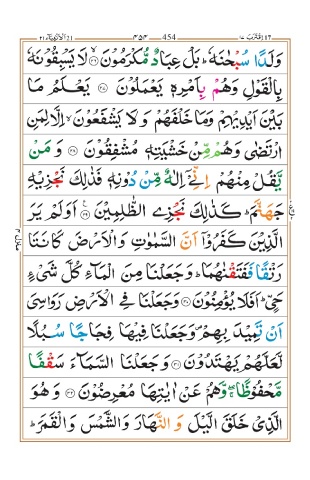 اقترب ١٧ 454 ۴۵۴ الانبیآء ٢١
وَلَدًا سُبْحٰنَهٗ ؕ بَلْ عِبَادٌ مُّكْرَمُوْنَ ۙ﴿۲۶﴾ لَا یَسْبِقُوْنَهٗ
بِالْقَوْلِ وَهُمْ بِاَمْرِهٖ یَعْمَلُوْنَ ﴿۲۷﴾ یَعْلَمُ مَا
بَیْنَ اَیْدِیْهِمْ وَمَا خَلْفَهُمْ وَلَا یَشْفَعُوْنَ ۙ اِلَّا لِمَنِ
ارْتَضٰی وَهُمْ مِّنْ خَشْیَتِهٖ مُشْفِقُوْنَ ﴿۲۸﴾ وَمَنْ
یَّقُلْ مِنْهُمْ اِنِّیْۤ اِلٰهٌ مِّنْ دُوْنِهٖ فَذٰلِكَ نَجْزِیْهِ
جَهَنَّمَ ؕ كَذٰلِكَ نَجْزِی الظّٰلِمِیْنَ ﴿۲۹﴾ اَوَلَمْ یَرَ
الَّذِیْنَ كَفَرُوْۤا اَنَّ السَّمٰوٰتِ وَالْاَرْضَ كَانَتَا
رَتْقًا فَفَتَقْنٰهُمَا ؕ وَجَعَلْنَا مِنَ الْمَآءِ كُلَّ شَیْءٍ
حَیٍّ ؕ اَفَلَا یُؤْمِنُوْنَ ﴿۳۰﴾ وَجَعَلْنَا فِی الْاَرْضِ رَوَاسِیَ
اَنْ تَمِیْدَ بِهِمْ ۪ وَجَعَلْنَا فِیْهَا فِجَاجًا سُبُلًا
لَّعَلَّهُمْ یَهْتَدُوْنَ ﴿۳۱﴾ وَجَعَلْنَا السَّمَآءَ سَقْفًا
مَّحْفُوْظًا ۖۚ وَّهُمْ عَنْ اٰیٰتِهَا مُعْرِضُوْنَ ﴿۳۲﴾ وَهُوَ
الَّذِیْ خَلَقَ الَّیْلَ وَالنَّهَارَ وَالشَّمْسَ وَالْقَمَرَ ؕ